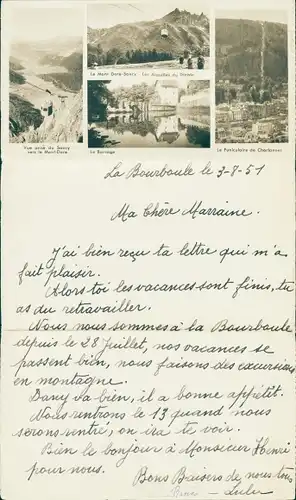 Le Mont Dore-Sancy
Vue prise du Sancy
vers le Mont-Dore
Le Funiculaire du Charlannes
La Bourboule le 3-8-51
Ma Chère Marraine.
J'ai bien reçu ta lettre qui m'a
fait plaisir.
Alors toi les vacances sont finis, tu
as du retravailler.
Nous nous sommes à la Bourboule
depuis le 28 Juillet, nos vacances se
passent bien, nous faisons des excursions
en montagne.
Dany va bien, il a bonne appétit.
Nous rentrons le 13 quand nous
serons rentré, on ira te voir.
Bien le bonjour à Monsieur Henri
pour nous.
Bons Baisers de nous tous
Lulu